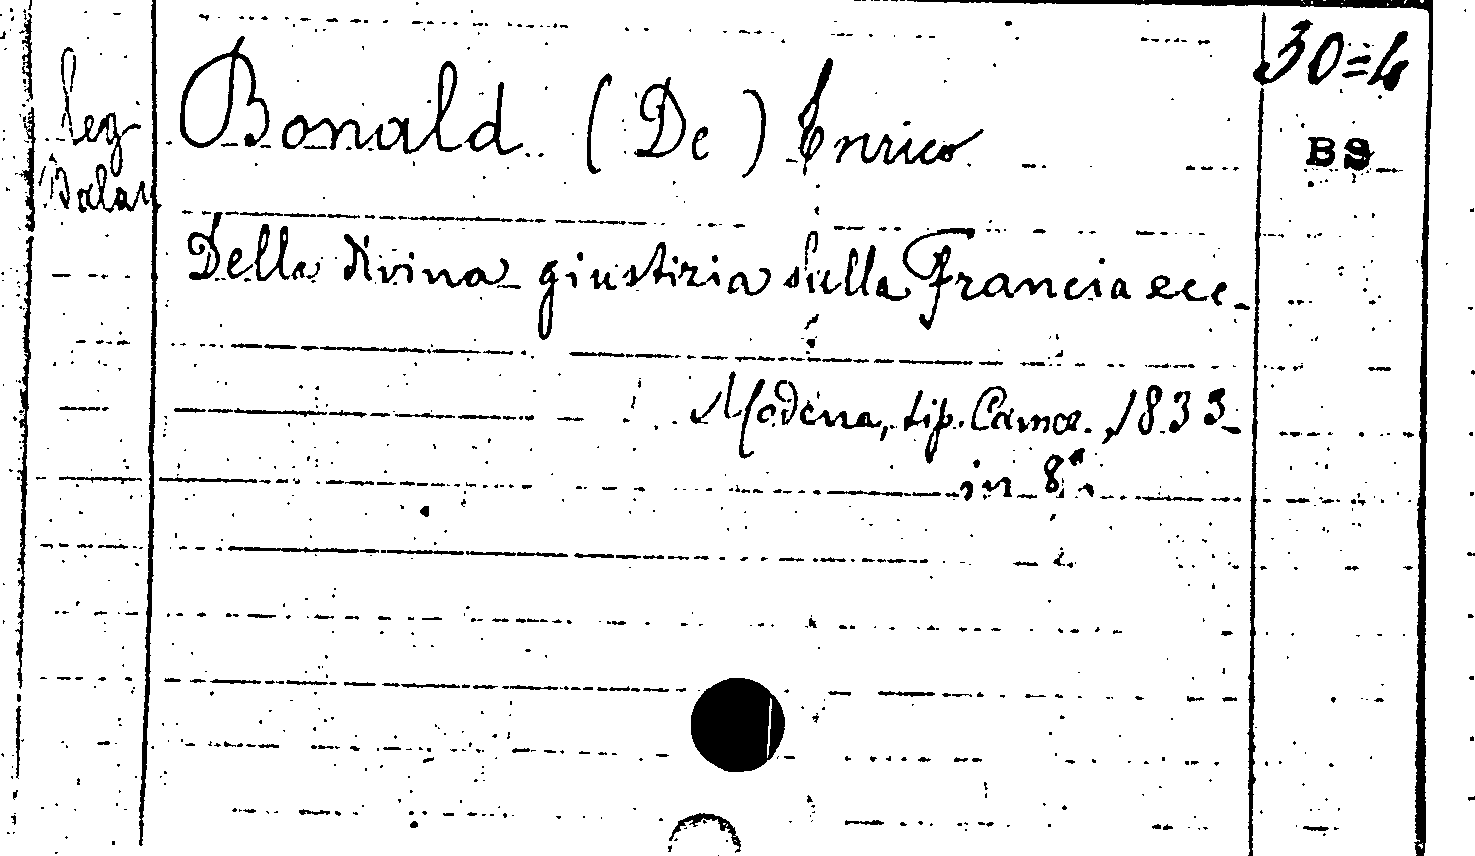 30=4
Leg
Balan
Bonald (De) Enrico
BS
Della divina giustizia sulla Francia ecc.
Modena, tip. Camer., 1833.
in 8°.